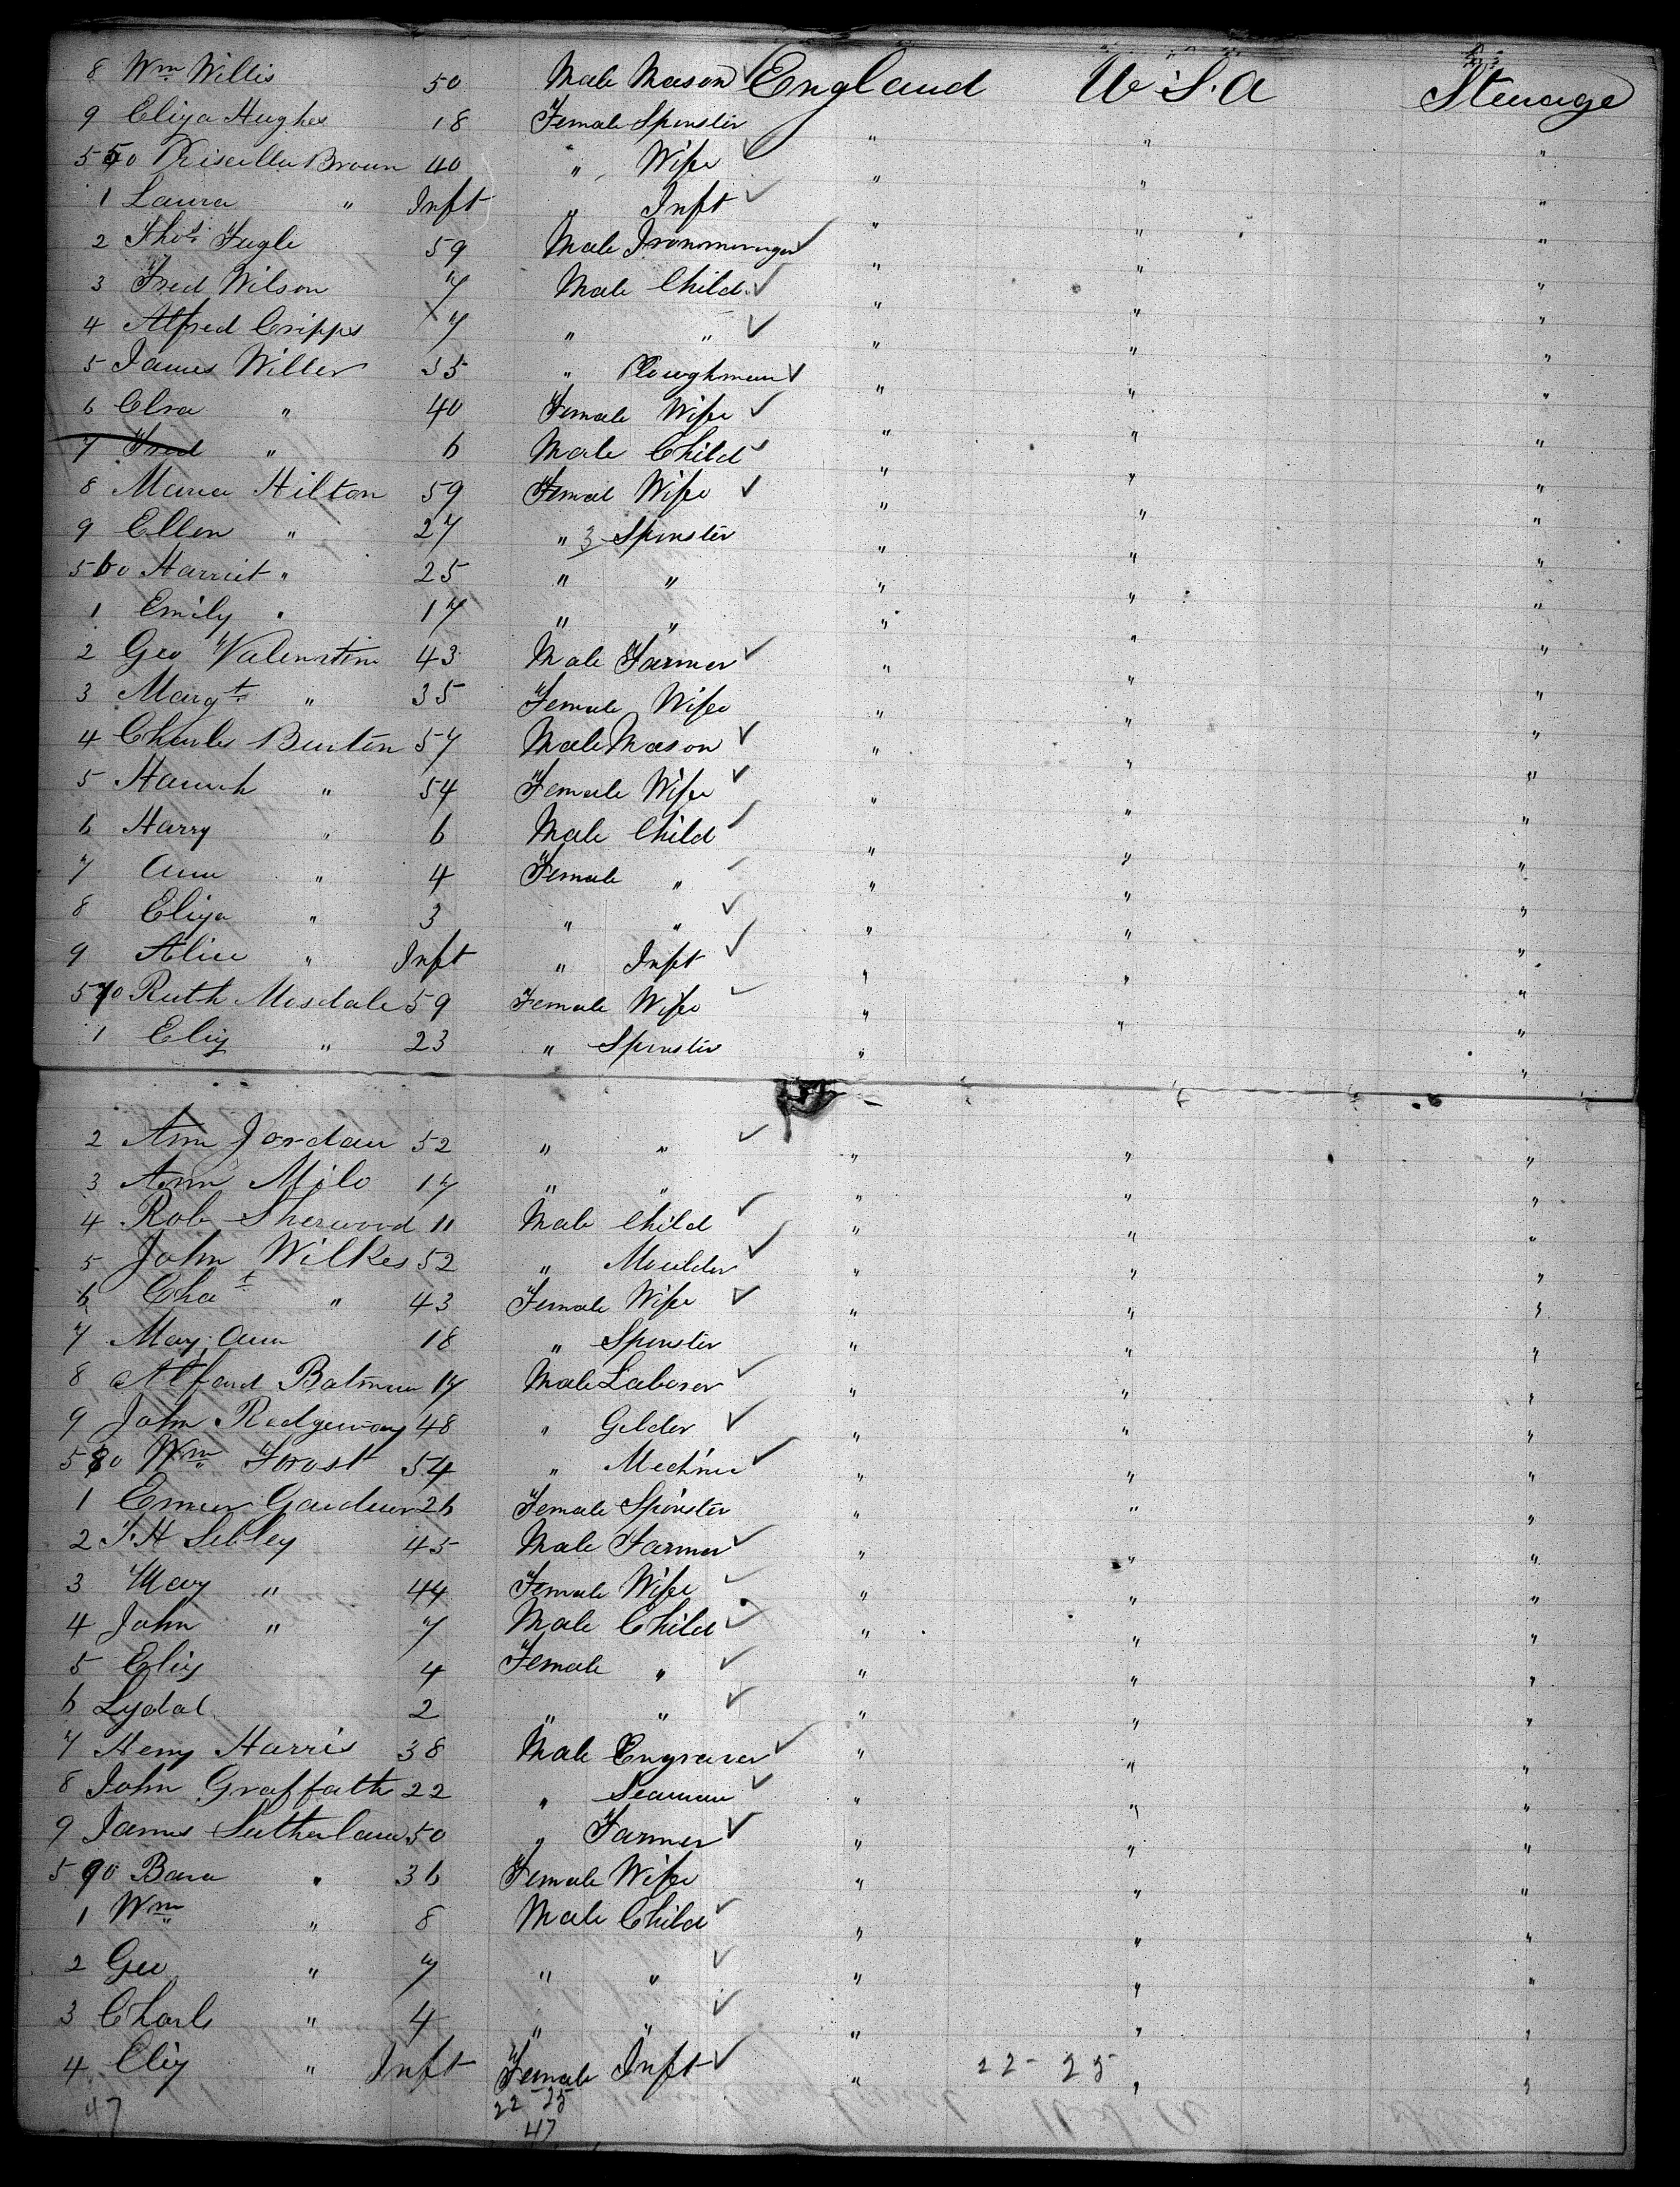 8 Wm Willis 50 Male Mason England U S. A Steerage
9 Eliza Hughes 18 Female Spinster " " "
550 Priscilla Brown 40 " Wife " " "
1 Laura " Inft " Inft " " "
2 Thos Fugle 59 Male Ironmonger " " "
3 Fred Wilson 7 Male Child " " "
4 Alfred Cripps 7 " " " " "
5 James Willer 35 " Ploughman " " "
6 Elra " 40 Female Wife " " "
7 Fred " 6 Male Child " " "
8 Maria Hilton 59 Femal Wife " " "
9 Ellen " 27 " 3 Spinster " " "
560 Harriet " 25 " " " " "
1 Emily " 17 " " " " "
2 Geo Valenstim 43 Male Farmer " " "
3 Margt " 35 Female Wife " " "
4 Charles Burton 57 Male Mason " " "
5 Hannah " 54 Female Wife " " "
6 Harry " 6 Male Child " " "
7 Ann " 4 Female " " " "
8 Eliza " 3 " " " " "
9 Alice " Inft " Inft " " "
570 Ruth Mosdale 59 Female Wife " " "
1 Eliz " 23 " Spinster " " "
2 Ann Jordan 52 " " " " "
3 Ann Milo 17 " " " " "
4 Rob Sherwood 11 Male Child " " "
5 John Wilkes 52 " Moulder " " "
6 Chat " 43 Female Wife " " "
7 Mary Ann 18 " Spinster " " "
8 Alfard Batman 17 Male Laborer " " "
9 John Redgeway 48 " Gelder " " "
580 Wm Forost 54 " Mechnic " " "
1 Emmer Gardner 26 Female Spinster " " "
2 T. H Sibley 45 Male Farmer " " "
3 Mary " 44 Female Wife " " "
4 John " 7 Male Child " " "
5 Eliz 4 Female " " " "
6 Lydal 2 " " " " "
7 Heny Harris 38 Male Engraver " " "
8 John Graffath 22 " Seaman " " "
9 James Sutherland 50 " Farmer " " "
590 Bara " 36 Female Wife " " "
1 Wm " 8 Male Child " " "
2 Geo " 7 " " " " "
3 Charls " 4 " " " " "
4 Eliz " Inft Female Inft " 22-25 " "
47 22 25
47